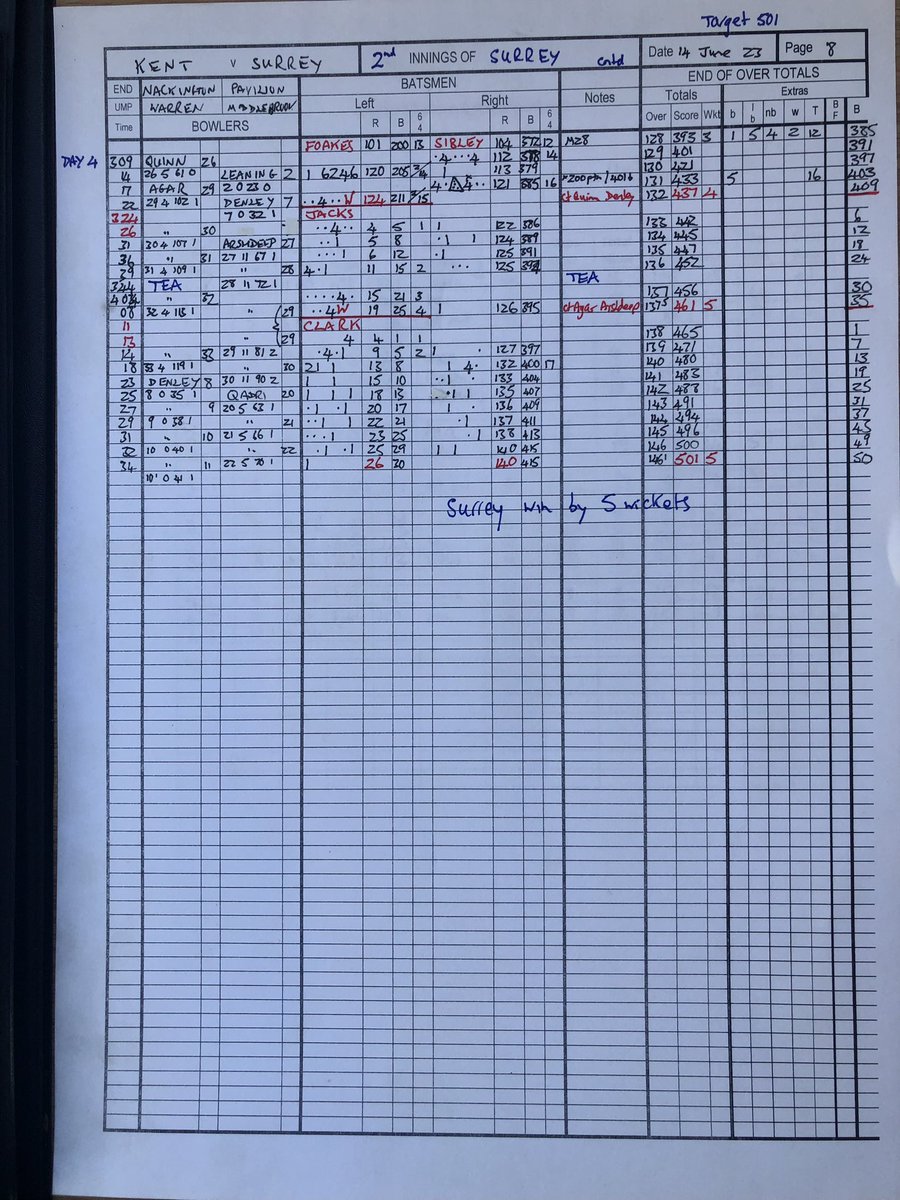 Target 501
KENT v SURREY 2nd INNINGS OF SURREY cntd Date 14 June 23 Page 8
END NACKINGTON PAVILION BATSMEN END OF OVER TOTALS
UMP WARREN MIDDLEBROOK Left Right Notes Totals Extras
Time BOWLERS R B 6 4 R B 6 4 Over Score Wkt b l b nb w T B F B
FOAKES 101 200 13 SIBLEY 104 372 12 M28 128 393 3 1 5 4 2 12 385
DAY 4 309 QUINN 26 . 4 . . . 4 112 378 14 129 401 391
14 26 5 61 0 LEANING 2 1 6 2 4 6 120 205 1 113 379 130 421 397
17 AGAR 29 2 0 23 0 121 385 16 131 433 5 16 403
22 29 4 102 1 DENLEY 7 . . 4 . . W 124 211 ct Quinn Denley 132 437 4 409
324 7 0 32 1 JACKS
26 " 30 . . 4 . . 4 5 1 1 122 386 133 442 6
31 30 4 107 1 ARSHDEEP 27 . . . 1 5 8 . 1 1 124 389 134 445 12
36 " 31 27 11 67 1 . . . 1 6 12 . 1 125 391 135 447 18
39 31 4 109 1 " 28 4 . 1 11 15 2 . . . 125 394 136 452 24
344 TEA 28 11 72 1 TEA
404 " 32 . . . . 4 . 15 21 3 137 456 30
08 32 4 113 1 " 29 . . 4 W 19 25 4 1 126 395 ct Agar Arshdeep 137 461 5 35
11 CLARK
13 " 29 4 4 1 1 138 465 1
14 " 33 29 11 81 2 . 4 . 1 9 5 2 1 . 127 397 139 471 7
18 33 4 119 1 " 30 2 1 1 13 8 1 4 . 132 400 17 140 480 13
23 DENLEY 8 30 11 90 2 1 1 15 10 . . 1 . 133 404 141 483 19
25 8 0 35 1 QADRI 20 1 1 1 18 13 . 1 1 135 407 142 488 25
27 " 9 20 5 63 1 . 1 . 1 20 17 . 1 136 409 143 491 31
29 9 0 38 1 " 21 . . 1 1 22 21 . 1 137 411 144 494 37
31 " 10 21 5 66 1 . . . 1 23 25 . 1 138 413 145 496 45
32 10 0 40 1 " 22 . 1 . 1 25 29 1 1 140 415 146 500 49
34 " 11 22 5 70 1 1 26 30 140 415 146 501 5 50
10 0 41 1
Surrey win by 5 wickets